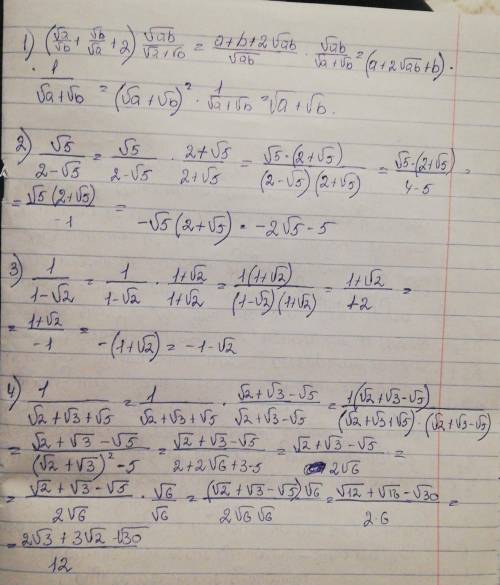 1) (√a/√b + √b/√a + 2) √ab/(√a+√b) = (a+b+2√ab)/√ab · √ab/(√a+√b) = (a+2√ab+b) ·
· 1/(√a+√b) = (√a+√b)² · 1/(√a+√b) = √a+√b.
2) √5/(2-√5) = √5/(2-√5) · (2+√5)/(2+√5) = √5·(2+√5)/((2-√5)(2+√5)) = √5·(2+√5)/(4-5) =
= √5(2+√5)/-1 = -√5(2+√5) = -2√5-5
3) 1/(1-√2) = 1/(1-√2) · (1+√2)/(1+√2) = 1(1+√2)/((1-√2)(1+√2)) = (1+√2)/(1-2) =
= (1+√2)/-1 = -(1+√2) = -1-√2
4) 1/(√2+√3+√5) = 1/(√2+√3+√5) · (√2+√3-√5)/(√2+√3-√5) = 1(√2+√3-√5)/((√2+√3+√5)·(√2+√3-√5))
= (√2+√3-√5)/((√2+√3)²-5) = (√2+√3-√5)/(2+2√6+3-5) = (√2+√3-√5)/2√6 =
= (√2+√3-√5)/2√6 · √6/√6 = (√2+√3-√5)√6/2√6√6 = (√12+√18-√30)/2·6 =
= (2√3+3√2-√30)/12